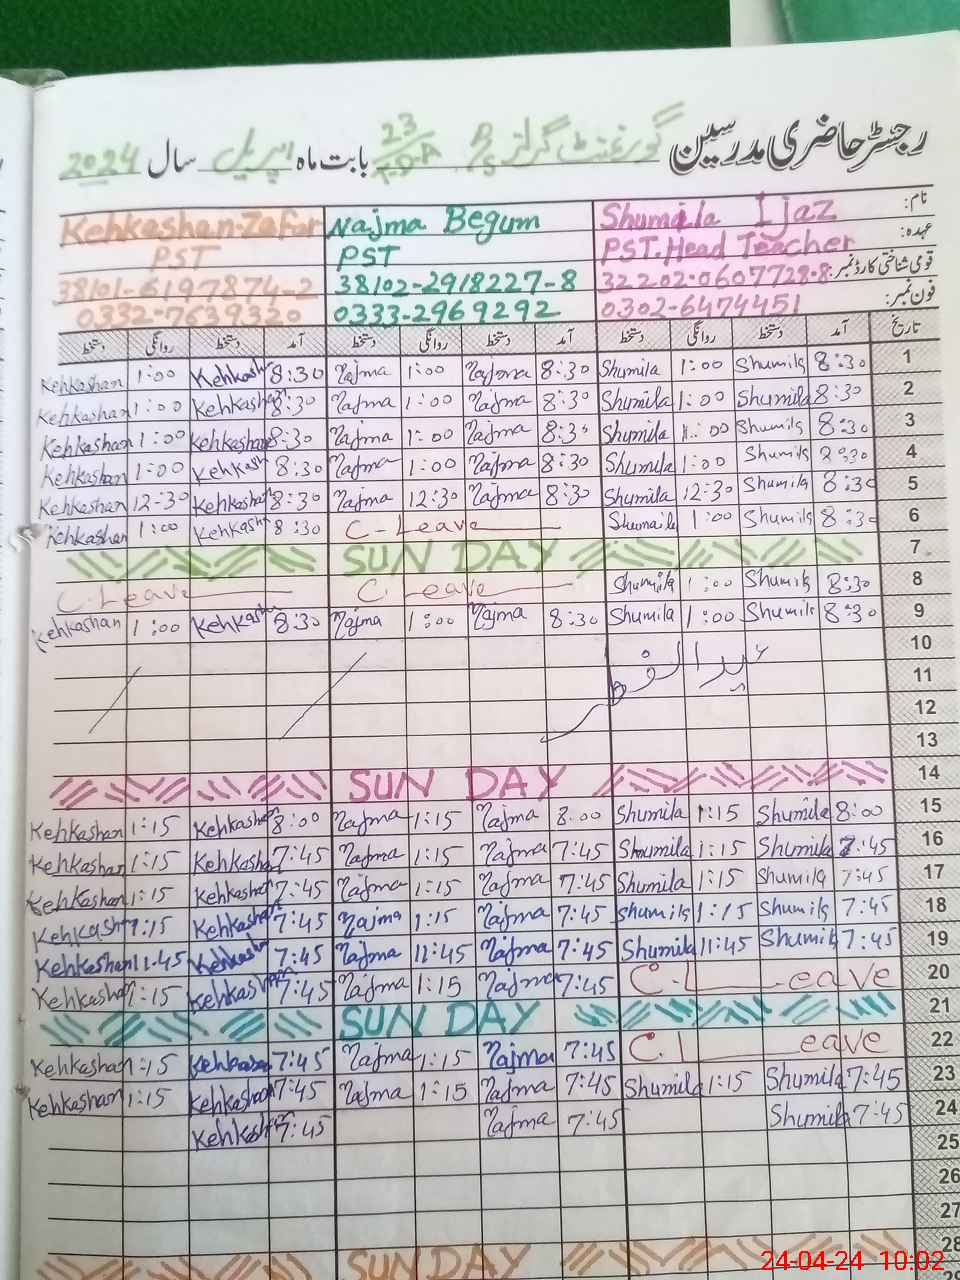 رجسٹر حاضری مدرسین گورنمنٹ گرلز P/S 23/T.D.A بابت ماہ اپریل سال 2024
Kehkashan Zafar Najma Begum Shumaila Ijaz نام:
PST PST PST.Head Teacher عہدہ:
38101-6197874-2 38102-2918227-8 32202-0607728-8 قومی شناختی کارڈ نمبر:
0332-7639320 0333-2969292 0302-6474451 فون نمبر:
دستخط روانگی دستخط آمد دستخط روانگی دستخط آمد دستخط روانگی دستخط آمد تاریخ
Kehkashan 1:00 Kehkash 8:30 Najma 1:00 Najma 8:30 Shumila 1:00 Shumila 8:30 1
Kehkashan 1:00 Kehkashan 8:30 Najma 1:00 Najma 8:30 Shumila 1:00 Shumila 8:30 2
Kehkashan 1:00 Kehkashan 8:30 Najma 1:00 Najma 8:30 Shumila 1:00 Shumila 8:30 3
Kehkashan 1:00 Kehkash 8:30 Najma 1:00 Najma 8:30 Shumila 1:00 Shumila 8:30 4
Kehkashan 12:30 Kehkashan 8:30 Najma 12:30 Najma 8:30 Shumila 12:30 Shumila 8:30 5
Kehkashan 1:00 Kehkash 8:30 C-Leave Shumaila 1:00 Shumila 8:30 6
SUN DAY 7
C.Leave C.Leave Shumila 1:00 Shumila 8:30 8
Kehkashan 1:00 Kehkasha 8:30 Najma 1:00 Najma 8:30 Shumila 1:00 Shumila 8:30 9
عید الفطر 10
11
12
13
SUN DAY 14
Kehkashan 1:15 Kehkashan 8:00 Najma 1:15 Najma 8:00 Shumila 1:15 Shumila 8:00 15
Kehkashan 1:15 Kehkashan 7:45 Najma 1:15 Najma 7:45 Shumila 1:15 Shumila 7:45 16
Kehkashan 1:15 Kehkashan 7:45 Najma 1:15 Najma 7:45 Shumila 1:15 Shumila 7:45 17
Kehkash 1:15 Kehkashan 7:45 Najma 1:15 Najma 7:45 Shumila 1:15 Shumila 7:45 18
Kehkashan 11:45 Kehkashan 7:45 Najma 11:45 Najma 7:45 Shumila 11:45 Shumila 7:45 19
Kehkashan 1:15 Kehkashan 7:45 Najma 1:15 Najma 7:45 C.L eave 20
SUN DAY 21
Kehkashan 1:15 Kehkasan 7:45 Najma 1:15 Najma 7:45 C.L eave 22
Kehkashan 1:15 Kehkashan 7:45 Najma 1:15 Najma 7:45 Shumila 1:15 Shumila 7:45 23
Kehkash 7:45 Najma 7:45 Shumila 7:45 24
25
26
27
SUN DAY 28
24-04-24 10:02